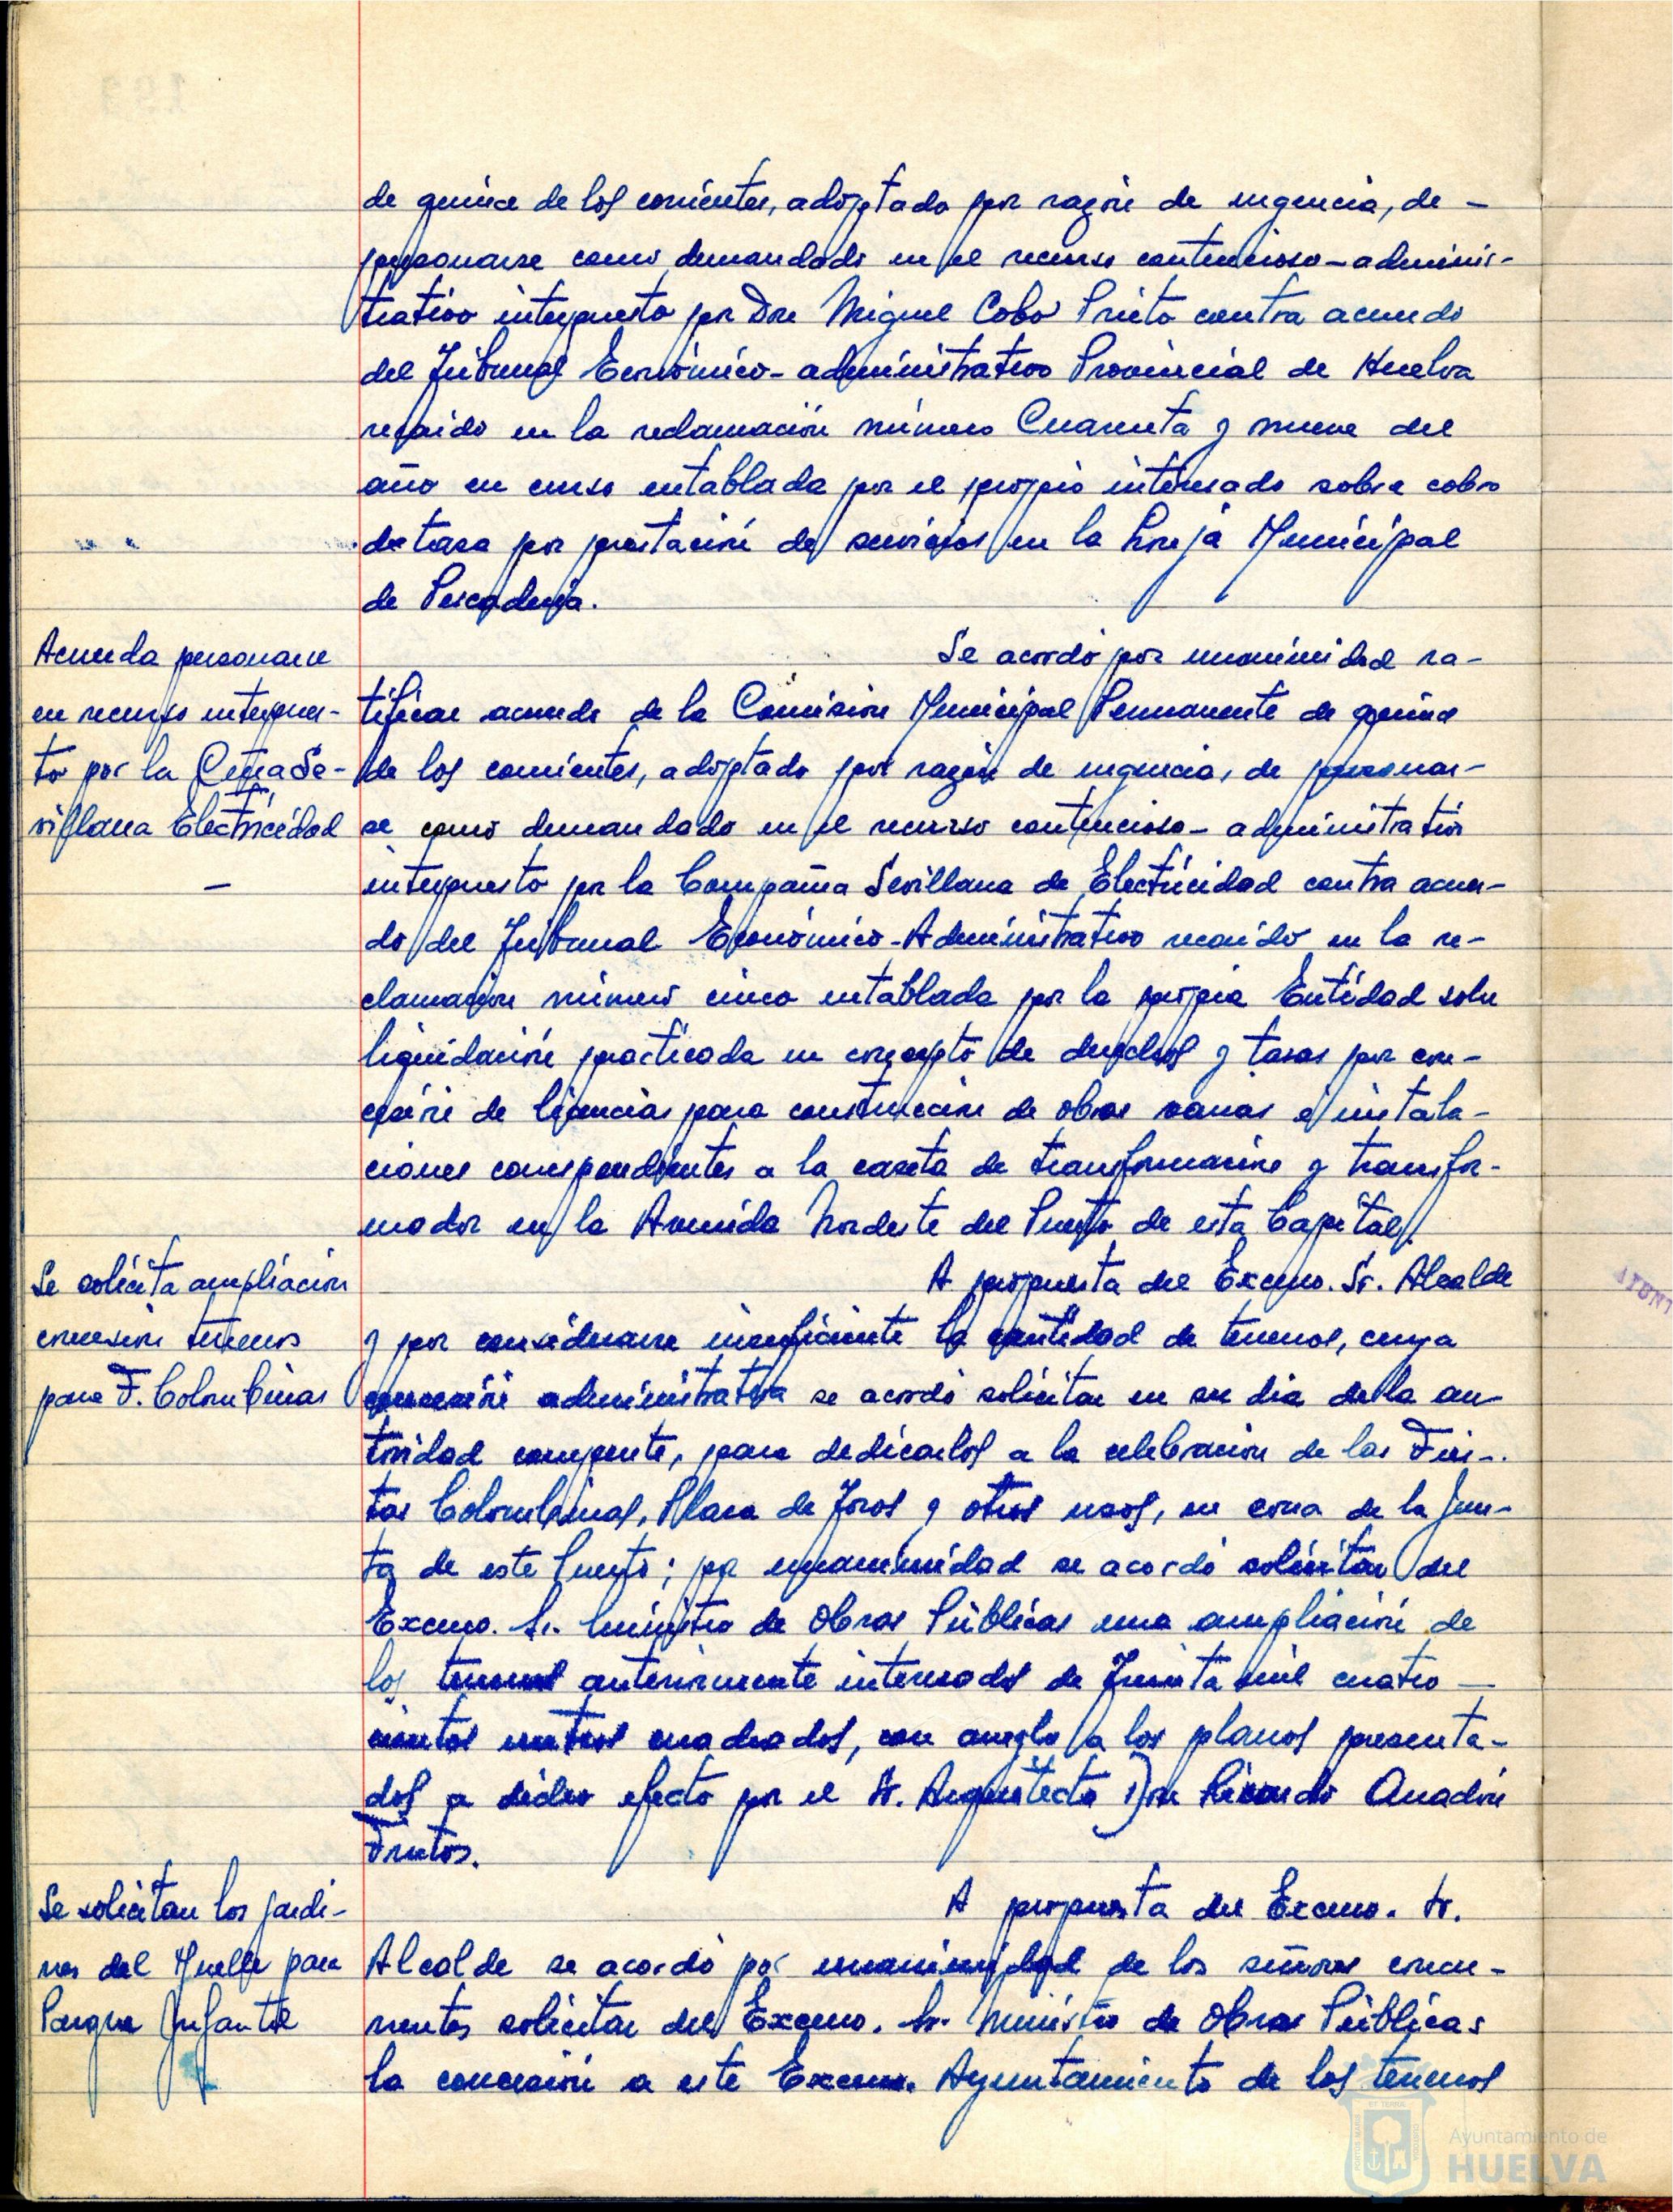 de quince de los corrientes, adoptado por razón de urgencia, de -
personarse como demandado en el recurso contencioso-adminis-
trativo interpuesto por Don Miguel Cobo Prieto contra acuerdo
del Tribunal Económico-administrativo Provincial de Huelva
recaido en la reclamación número Cuarenta y nueve del
año en curso entablada por el propio interesado sobre cobro
de tasa por prestación de servicios en la Lonja Municipal
de Pescaderia.
Acuerda personarse
en recurso interpues-
to por la Cª Se-
villana Electricidad
—
Se acordó por unanimidad ra-
tificar acuerdo de la Comisión Municipal Permanente de quince
de los corrientes, adoptado por razón de urgencia, de personar-
se como demandado en el recurso contencioso-administrativo
interpuesto por la Compañia Sevillana de Electricidad contra acuer-
do del Tribunal Económico-Administrativo recaido en la re-
clamación número cinco entablada por la propia Entidad sobre
liquidación practicada en concepto de derechos y tasas por con-
cesión de licencias para construcción de obras varias e instala-
ciones correspondientes a la caseta de transformación y transfor-
mador en la Avenida Nordeste del Puerto de esta Capital.
Se solicita ampliación
concesión terrenos
para F. Colombinas
A propuesta del Excmo. Sr. Alcalde
y por considerarse insuficiente la cantidad de terrenos, cuya
concesión administrativa se acordó solicitar en su dia de la au-
toridad compente, para dedicarlos a la celebración de las Fies-
tas Colombinas, Plaza de Toros y otros usos, en zona de la Jun-
ta de este Puerto; por unanimidad se acordó solicitar del
Excmo. Sr. Ministro de Obras Públicas una ampliación de
los terrenos anteriormente interesados de Treinta mil cuatro —
cientos metros cuadrados, con arreglo a los planos presenta-
dos a dicho efecto por el Sr. Arquitecto Don Ricardo Anadón
Frutos.
Se solicitan los jardi-
nes del Muelle para
Parque Infantil
A propuesta del Excmo. Sr.
Alcalde se acordó por unanimidad de los señores concu-
rrentes solicitar del Excmo. Sr. Ministro de Obras Públicas
la concesión a este Excmo. Ayuntamiento de los terrenos
Ayuntamiento de
HUELVA